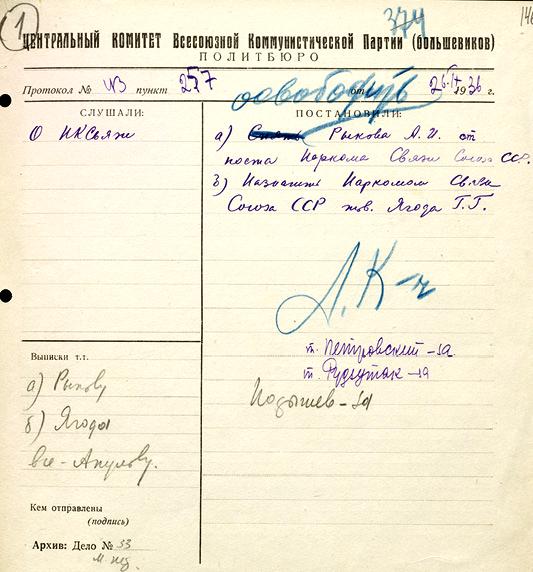 1
374
146
ЦЕНТРАЛЬНЫЙ КОМИТЕТ Всесоюзной Коммунистической Партии (большевиков)
ПОЛИТБЮРО
Протокол № из пункт 257 от 26.IX 1936 г.
освободить
СЛУШАЛИ:
О НКСвязи
ПОСТАНОВИЛИ:
а) Снять Рыкова А. И. от
поста Наркома Связи Союза ССР.
б) Назначить Наркомом Связи
Союза ССР тов. Ягода Г.Г.
Л. К-ч
т. Петровский - за
т. Рудзутак - за
Постышев - за
Выписки т.т.
а) Рыкову
б) Ягода
все - Акулову.
Кем отправлены
(подпись)
Архив: Дело № 53